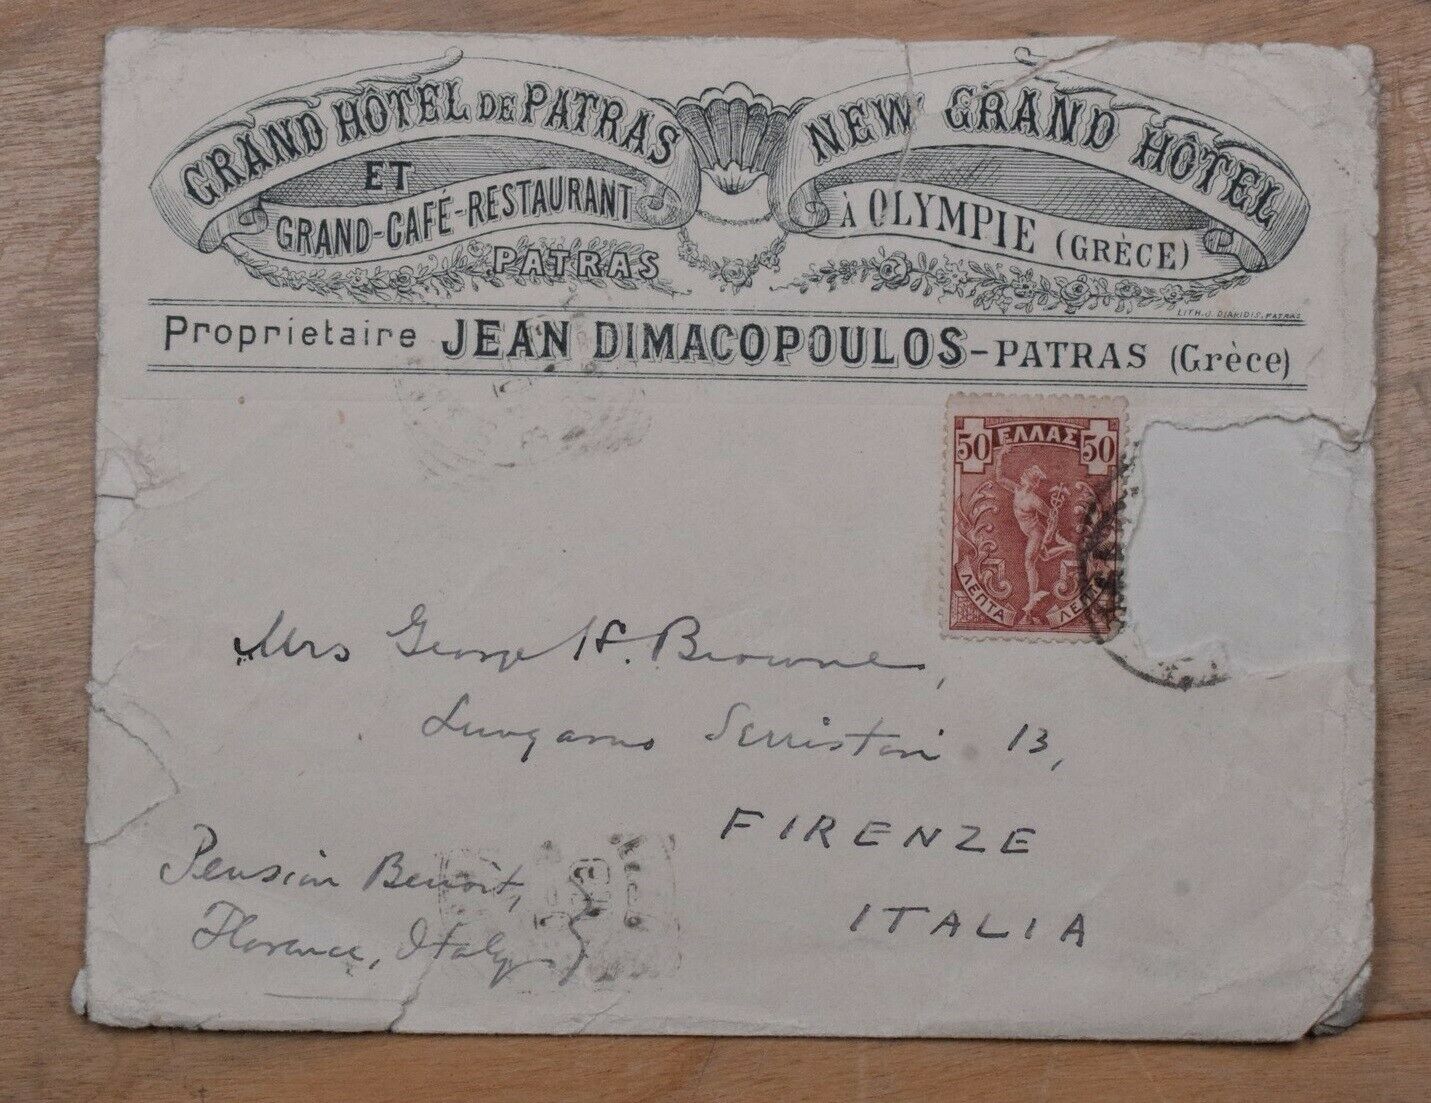 GRAND HÔTEL DE PATRAS
ET
GRAND-CAFÉ-RESTAURANT
PATRAS
NEW GRAND HÔTEL
À OLYMPIE (GRÈCE)
LITH. J. DIARIDIS, PATRAS
Proprietaire JEAN DIMACOPOULOS-PATRAS (Grèce)
50 ΕΛΛΑΣ 50
ΛΕΠΤΑ ΛΕΠΤΑ
Mrs George H. Browne,
Lungarno Serristori 13,
FIRENZE
ITALIA
Pension Benoit,
Florence, Italy